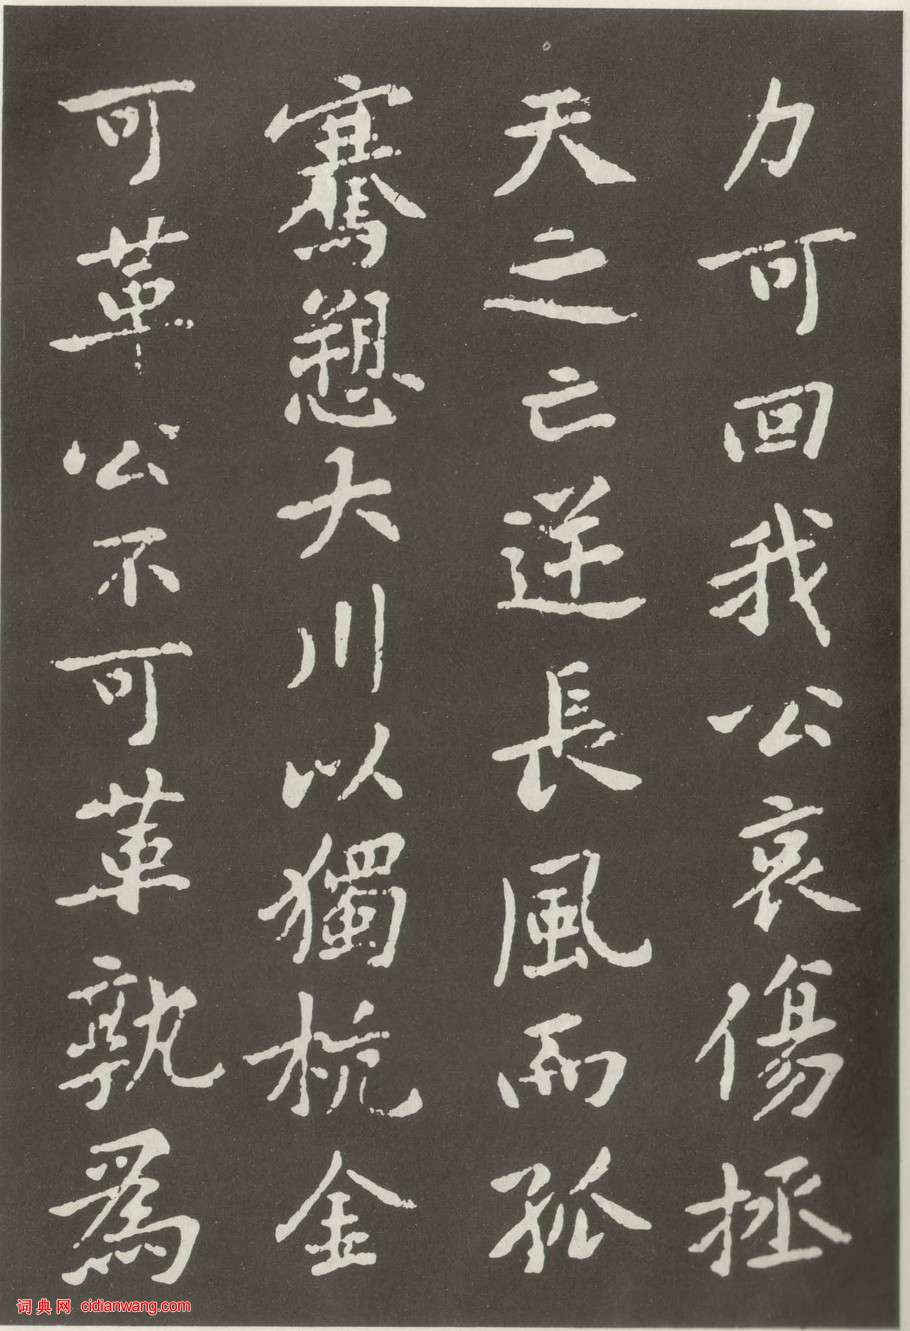 力可回我公哀傷拯
天之亡逆長風而孤
騫愬大川以獨杭金
可革公不可革孰爲
词典网 cidianwang.com